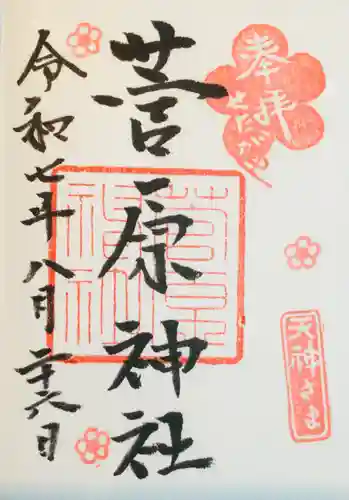 奉拝
天神さま
菅原神社
令和七年八月二十六日